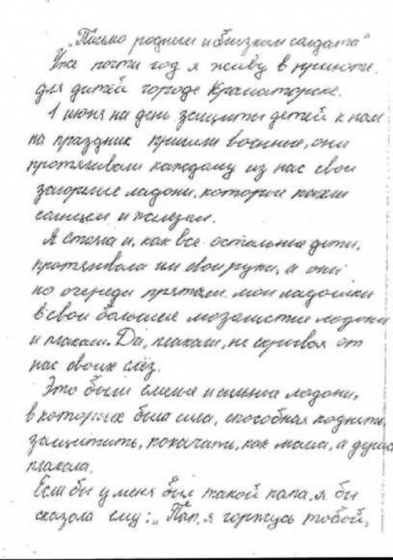 „Письмо родным и близким солдата"
Уже почти год я живу в приюте
для детей городе Краматорске.
1 июня на день защиты детей к нам
на праздник пришли военные, они
протягивали каждому из нас свои
загорелые ладони, которые пахли
солнцем и железом.
Я стояла и, как все остальные дети,
протягивала им свои руки, а они
по очереди прятали мои ладошки
в свои большие мозолистые ладони
и плакали. Да, плакали, не скрывая от
нас своих слёз.
Это были смелые и сильные ладони,
в которых была сила, способная поднять,
защитить, покачать, как мама, а душа
плакала.
Если бы у меня был такой папа, я бы
сказала ему: „Пап, я горжусь тобой,